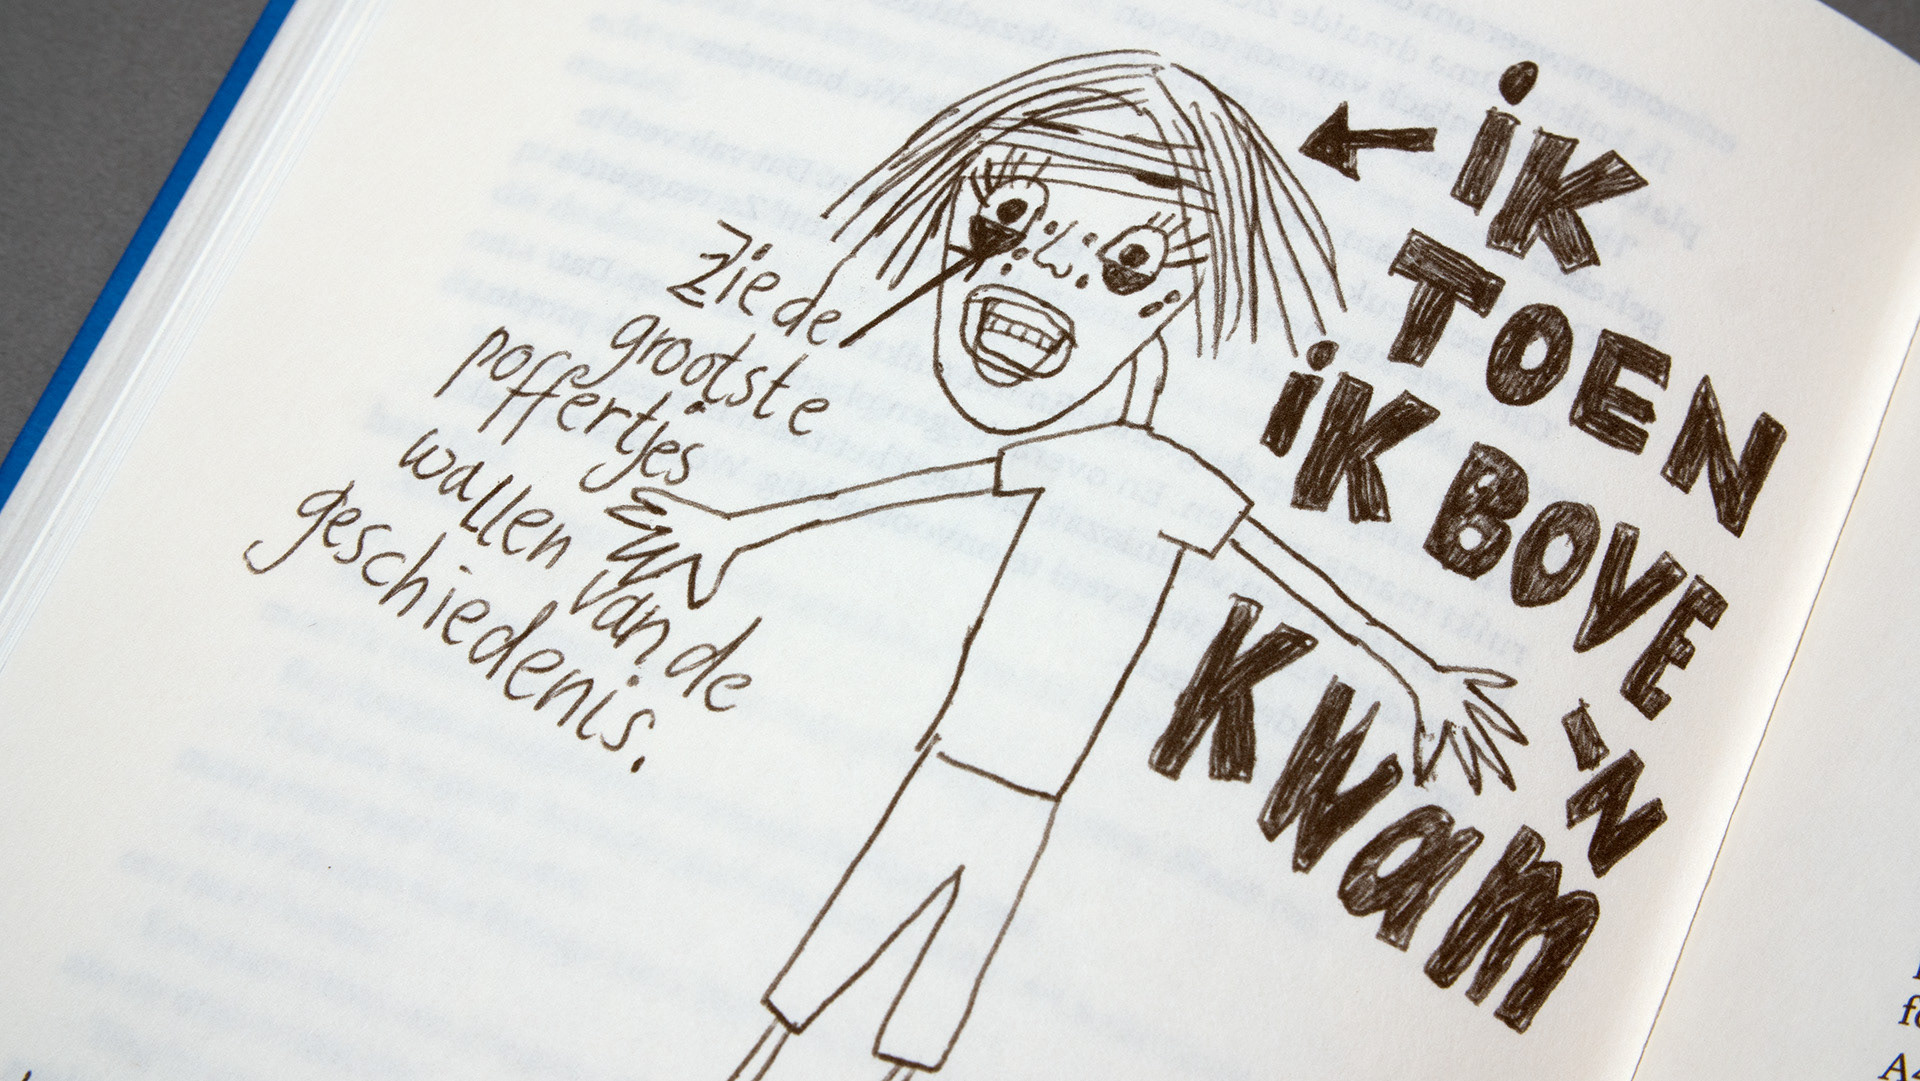 iK
TOEN
iK BOVE
'N
KWam
Zie de
grootste
poffertjes
wallen van de
geschiedenis.